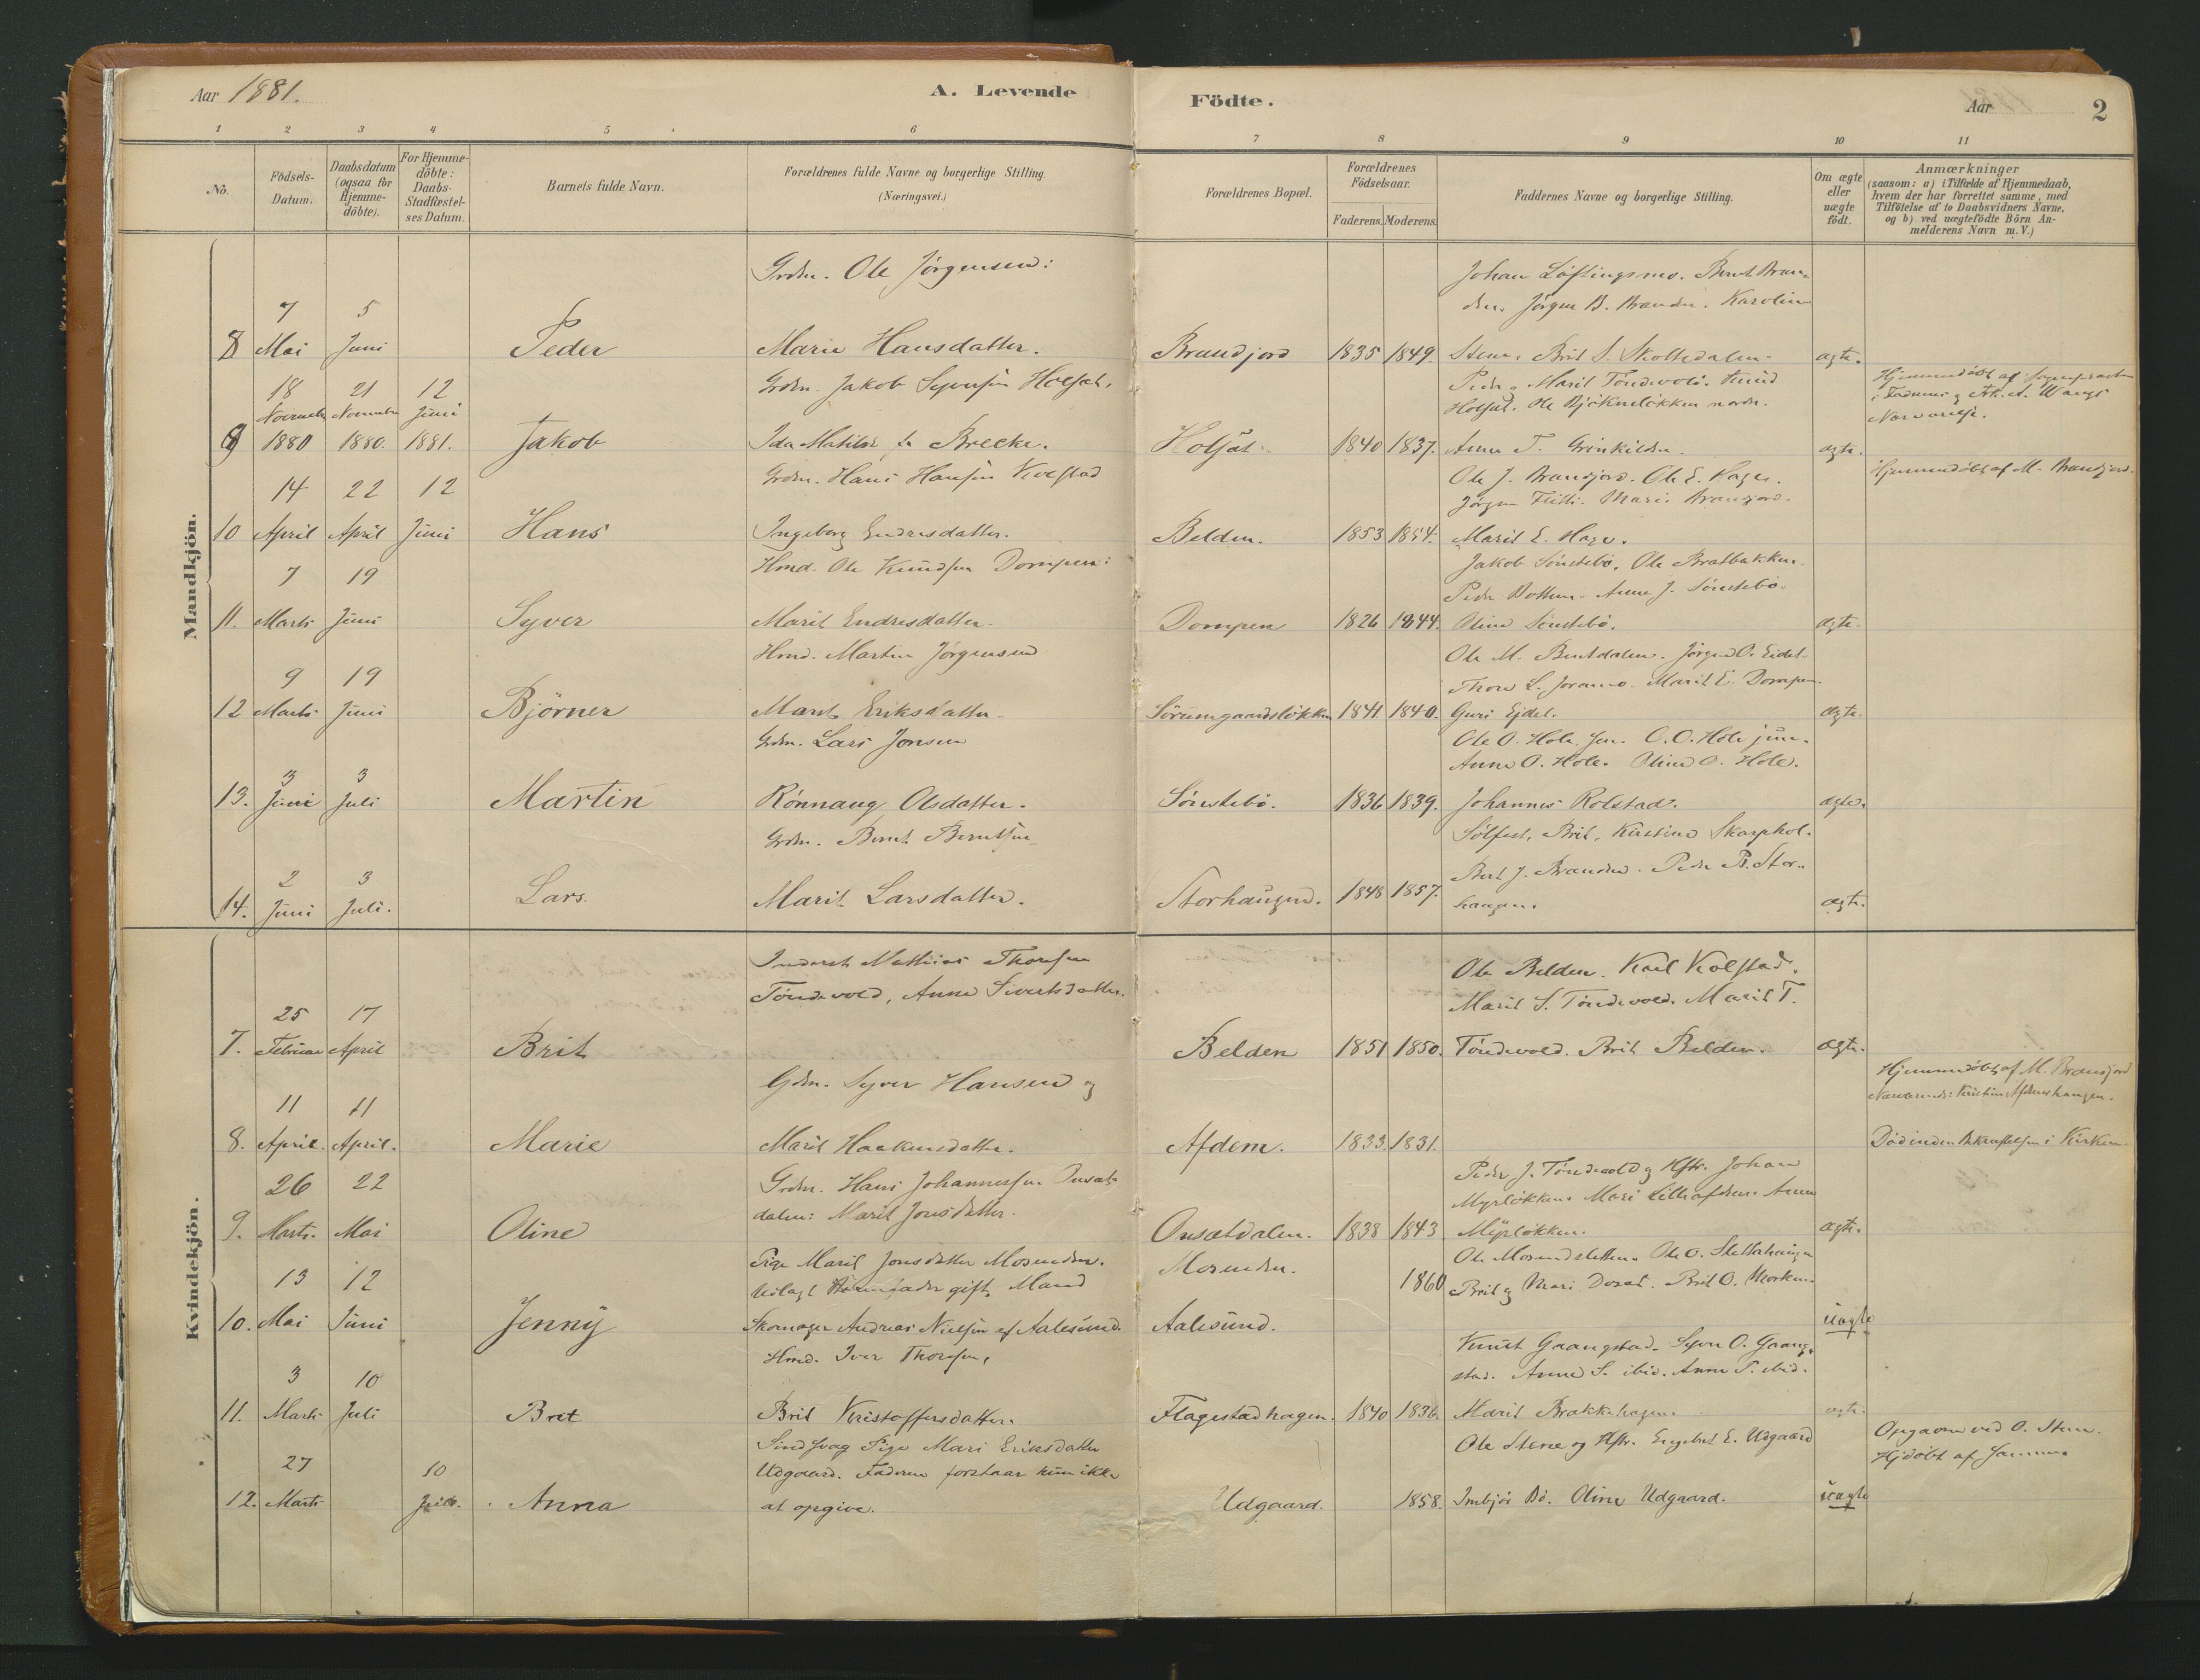 Aar 1881.
A. Levende Födte.
Aar
2
1 2 3 4 5 6 7 8 9 10 11
No.
Födsels-
Datum.
Daabsdatum
(ogsaa for
Hjemme-
döbte).
For Hjemme-
döbte:
Daabs-
Stadfæstel-
ses Datum.
Barnets fulde Navn.
Forældrenes fulde Navne og borgerlige Stilling.
(Næringsvei.)
Forældrenes Bopæl.
Forældrenes
Födselsaar.
Faderens.
Moderens.
Faddernes Navne og borgerlige Stilling.
Om ægte
eller
uægte
födt.
Anmærkninger
(saasom: a) i Tilfælde af Hjemmedaab,
hvem der har forrettet samme, med
Tilföielse af to Daabsvidners Navne,
og b) ved uægtefödte Börn An-
melderens Navn m. V.)
Mandkjön.
Grdm. Ole Jörgensen:
Johan Löftingsmo. Berit Bran-
den. Jörgen B. Branden. Karolin
7 5
8 Mai Juni Peder Marie Hansdatter. Brandjord 1835 1849. Stene. Brit S. Skottedalen. ægte.
18 21 12 Grdm. Jakob Syversen Holsæt.
Peder og Marit Töndevold. Knud
Hjemmedöbt af
November November Juni
Holsæt. Ole Björkneløkken nordre.
9 1880 1880. 1881. Jakob Ida Matilde f. Brecke. Holsæt 1840 1837. Anne T. Grönkilden. ægte.
14 22 12 Grdm. Hans Hansen Kolstad
Ole J. Brandjord. Ole E. Hagen.
Hjemmedöbt af M. Brandjord.
Jörgen Flitti. Mari Brandjord.
10 April April Juni Hans Ingeborg Endresdatter. Belden. 1853 1854. Marit E. Hagen.
7 19 Hmd. Ole Knudsen Dompen:
Jakob Sönstebö. Ole Bratbakken.
Peder Botten. Anne J. Sönstebö.
11. Marts Juni Syver Marit Endresdatter. Dompen 1826 1844. Oline Sönstebö. ægte.
9 19 Hmd. Martin Jörgensen
Ole M. Bentdalen. Jörgen O. Eidet.
Thore L. Joramo. Marit E. Dompen.
12 Marts Juni Björner Marit Eriksdatter. Sörumgaardslökken 1841 1840. Guri Ejdet. ægte.
3 3 Grdm. Lars Jonsen
Ole O. Hole sen. O. O. Hole jun.
Anne O. Hole. Oline O. Hole.
13. Juni Juli Martin Rönnaug Olsdatter. Sönstebö. 1836 1839. Johannes Rolstad. ægte.
2 3 Grdm. Bernt Berntsen
Sölfest, Brit, Kirstine Skarphol.
Berit J. Branden. Peder B. Stor-
14. Juni Juli. Lars. Marit Larsdatter. Storhaugen. 1848 1857. haugen. ægte.
Kvindekjön.
Inderst Mathias Thoresen
Töndevold, Anne Sivertsdatter.
Ole Belden. Karl Kolstad.
Marit S. Töndevold. Marit T.
25 17
7. Februar April Brit Belden 1851 1850. Töndevold. Brit Belden. ægte.
11 11 Gdm. Syver Hansen og
Hjemmedöbt af M. Brandjord
8. April. April. Marie Marit Haakensdatter. Afdem. 1833. 1831. Död inden Bekræftelsen i Kirken.
26 22 Grdm. Hans Johannessen Onsæt-
dalen: Marit Jonsdatter.
Peder J. Töndevold og Hstr. Johan
Myrlökken. Mari Lilleafdem. Anne
9. Marts. Mai Oline Onsætdalen. 1838 1843 Myrlökken. ægte.
13 12 Pige Marit Jonsdatter Mosenden.
Udlagt Barnefader gift Mand
Mosenden. 1860
Brit og Mari Dosæt. Brit O. Morken.
10. Mai Juni Jenny Skomager Andreas Nielsen af Aalesund. Aalesund. uægte
3 10 Hmd. Iver Thoresen,
Knut Graangstad. Syver O. Graang-
stad. Anne S. ibid. Anne P. ibid.
11. Marts Juli Bret Brit Kristoffersdatter. Flagestadhagen. 1840 1836. Marit Brakkehagen. ægte.
27 10 Sindsvag Pige Mari Eriksdatter
Udgaard. Faderen forstaar hun ikke
Ole Stene og Hstr. Engebret E. Udgaard
Opgaven ved O. Stene.
Hjdöbt af Samme
12. Marts Juli. Anna at opgive. Udgaard. 1858. Imbjör Bö. Oline Udgaard. uægte